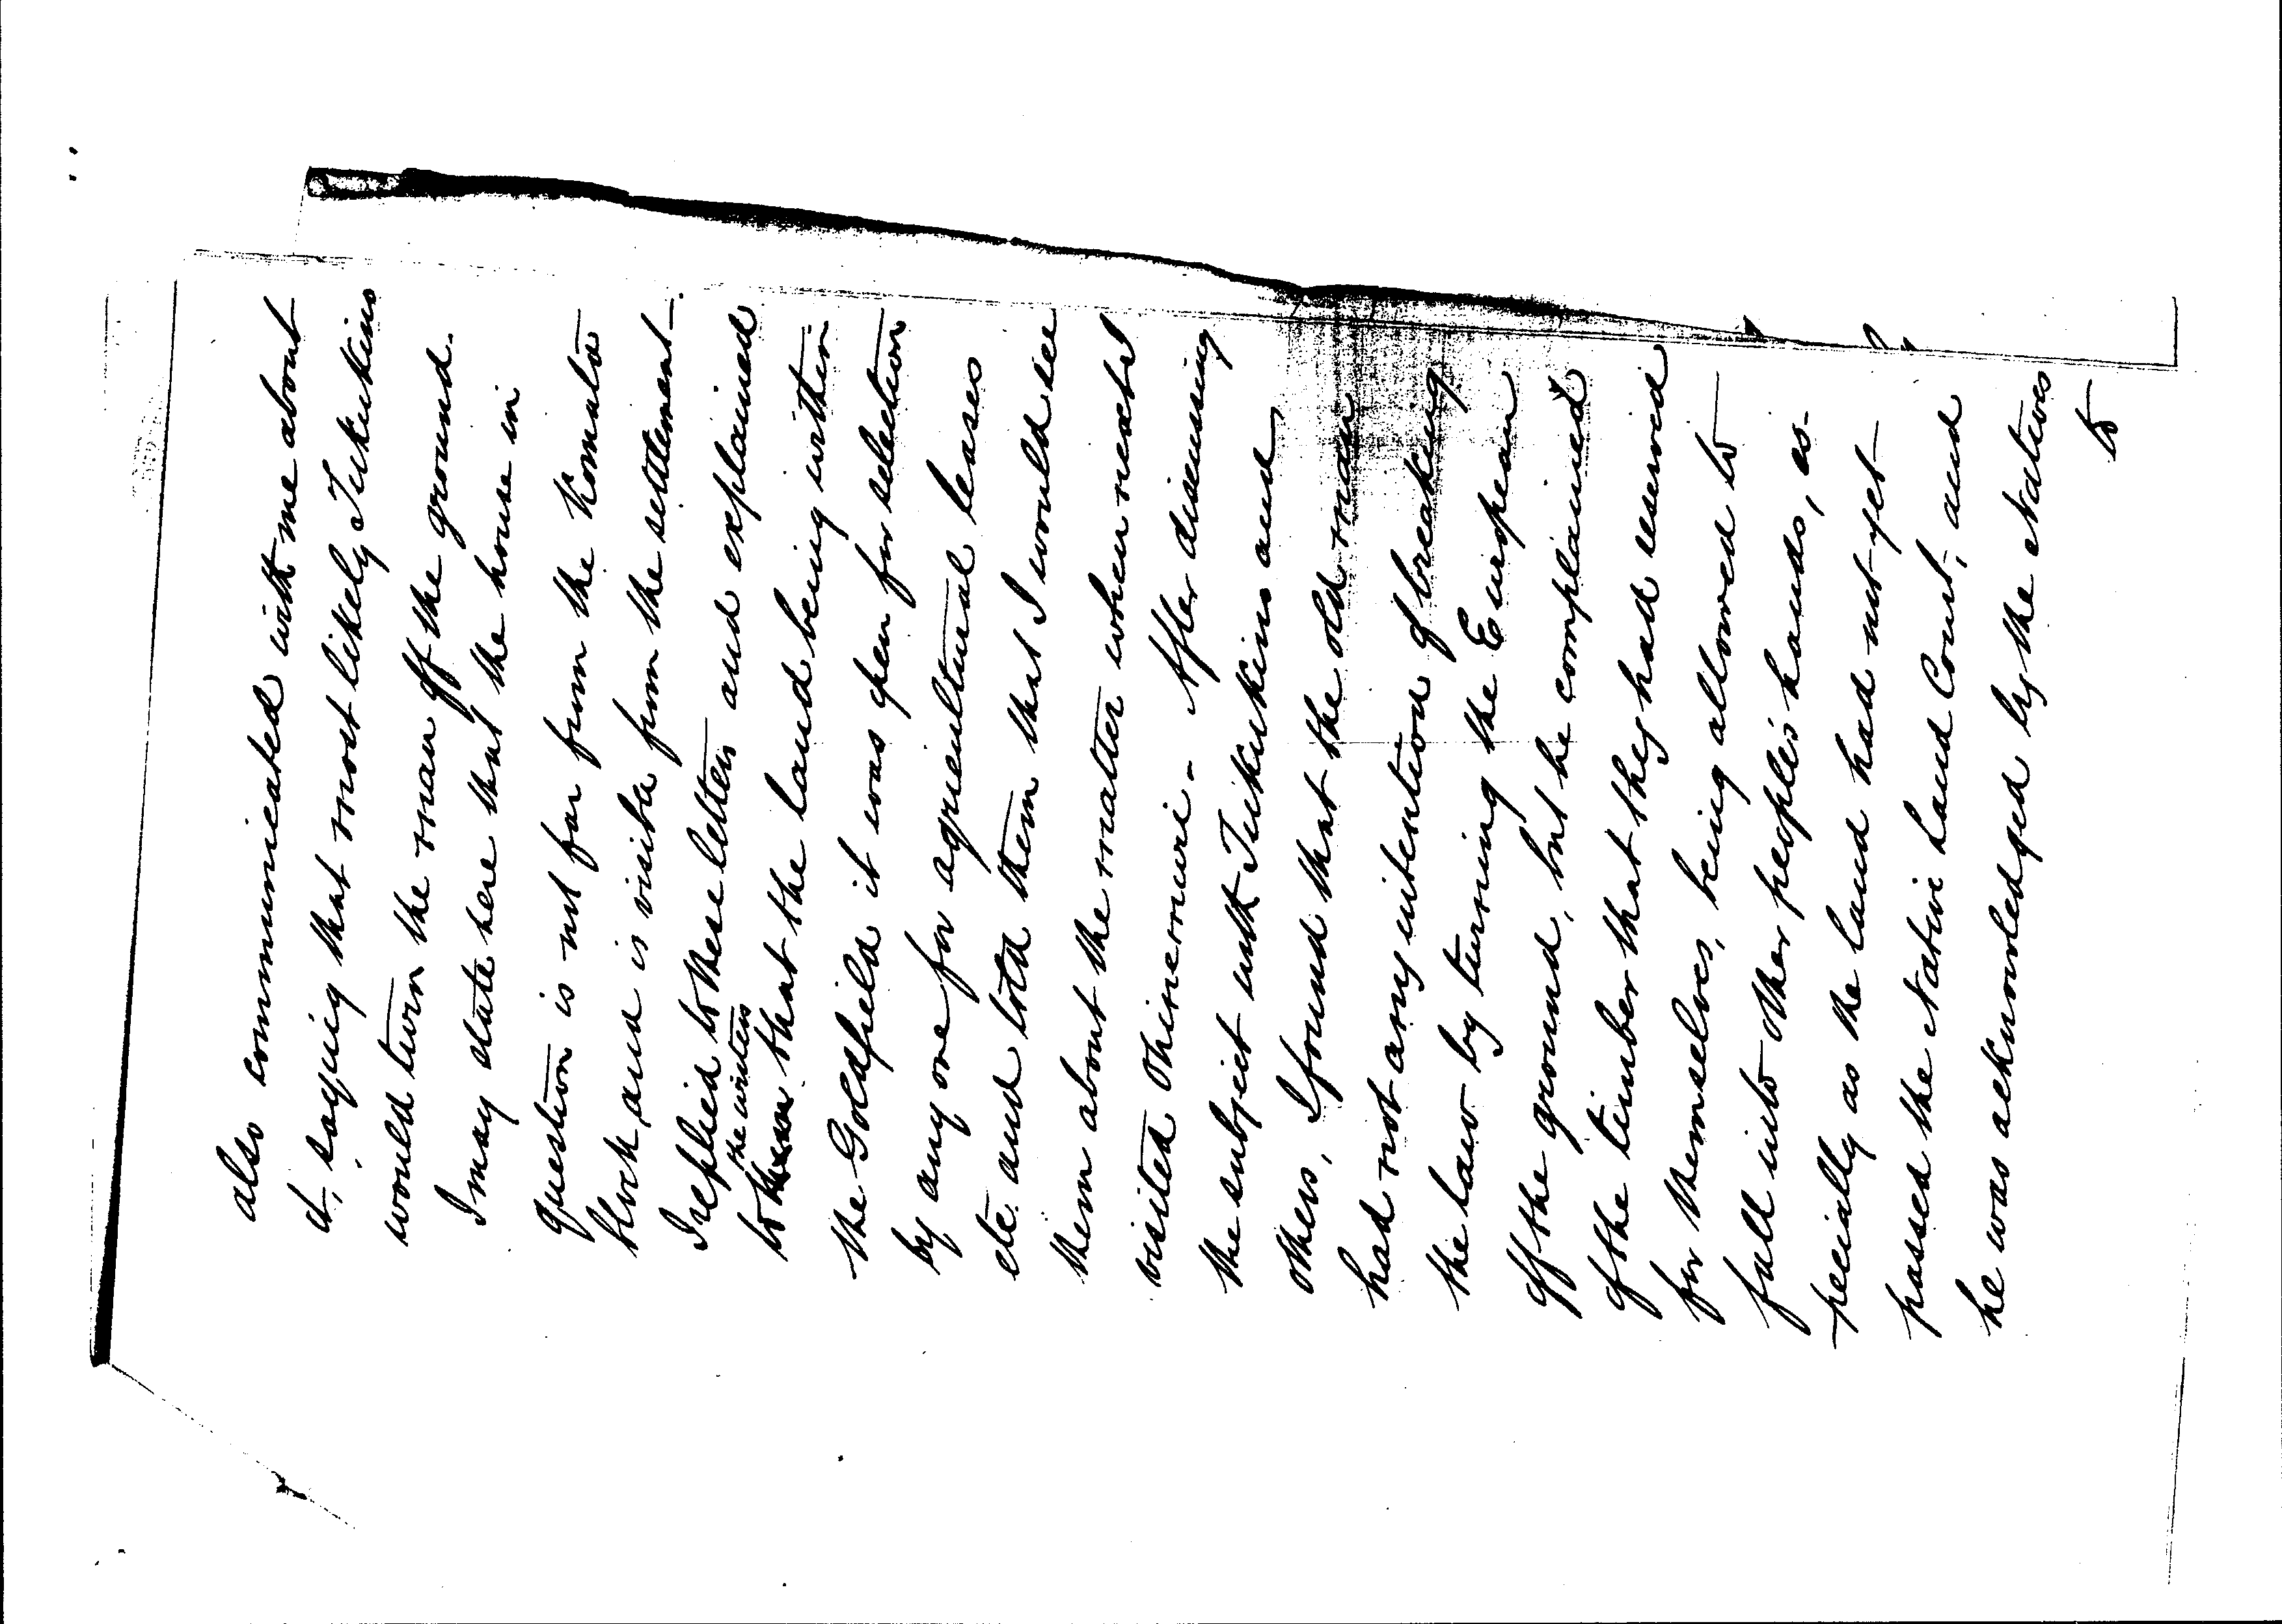 also communicated with me about
it, saying that most likely Tukukino
would turn the man off the ground.
I may state here that the house in
question is not far from the Komata
block, and is visible from the settlement.
I replied to these letters and explained
to the writers that the land being within
the Goldfield it was open for selection
by any one for agricultural leases
etc. and told them that I would see
them about the matter when next I
visited Ohinemuri. After discussing
the subject with Tukukino and
others, I found that the old man
had not any intention of breaking
the law by turning the European
off the ground, but he complained
of the timber that they had reserved
for themselves, being allowed to
fall into other people's hands, es-
pecially as the land had not yet
passed the Native Land Court, and
he was acknowledged by the Natives
to